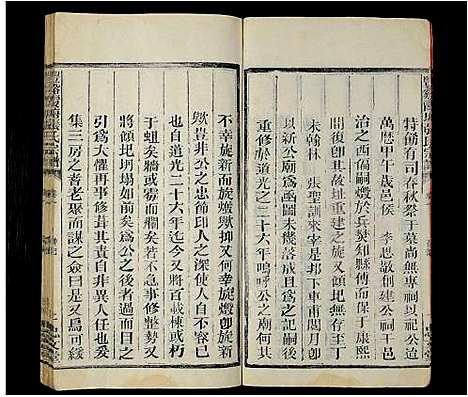 特飭有司春秋祭于墓尚無專祠以祀公迨
萬曆甲午歲邑侯 李思敬創建公祠于邑
治之西偏嗣燬於兵燹知縣傅而保于康熙
間復卽其故址重建之旋又傾圯無存至丁
未翰林 張聖訓來宰是邦下車甫閱月卽
以新公廟爲亟圖未幾落成由是以後其燬而
重修於道光之二十六年嗚呼公之廟何其
不幸旋新而旋燬歟抑又何幸旋燬卽旋新
歟豈非公之深使人自不容
已者自道光二十六年迄今又百載棟或朽
于蛀矣牆或霉而苔矣苟不及時整修勢又
將傾圯坍塌如前矣爲公之後裔過而目之
引爲大懼再事修葺其責自非異人任也爰
集三房之耆老聚而謀之僉曰是又烏可緩